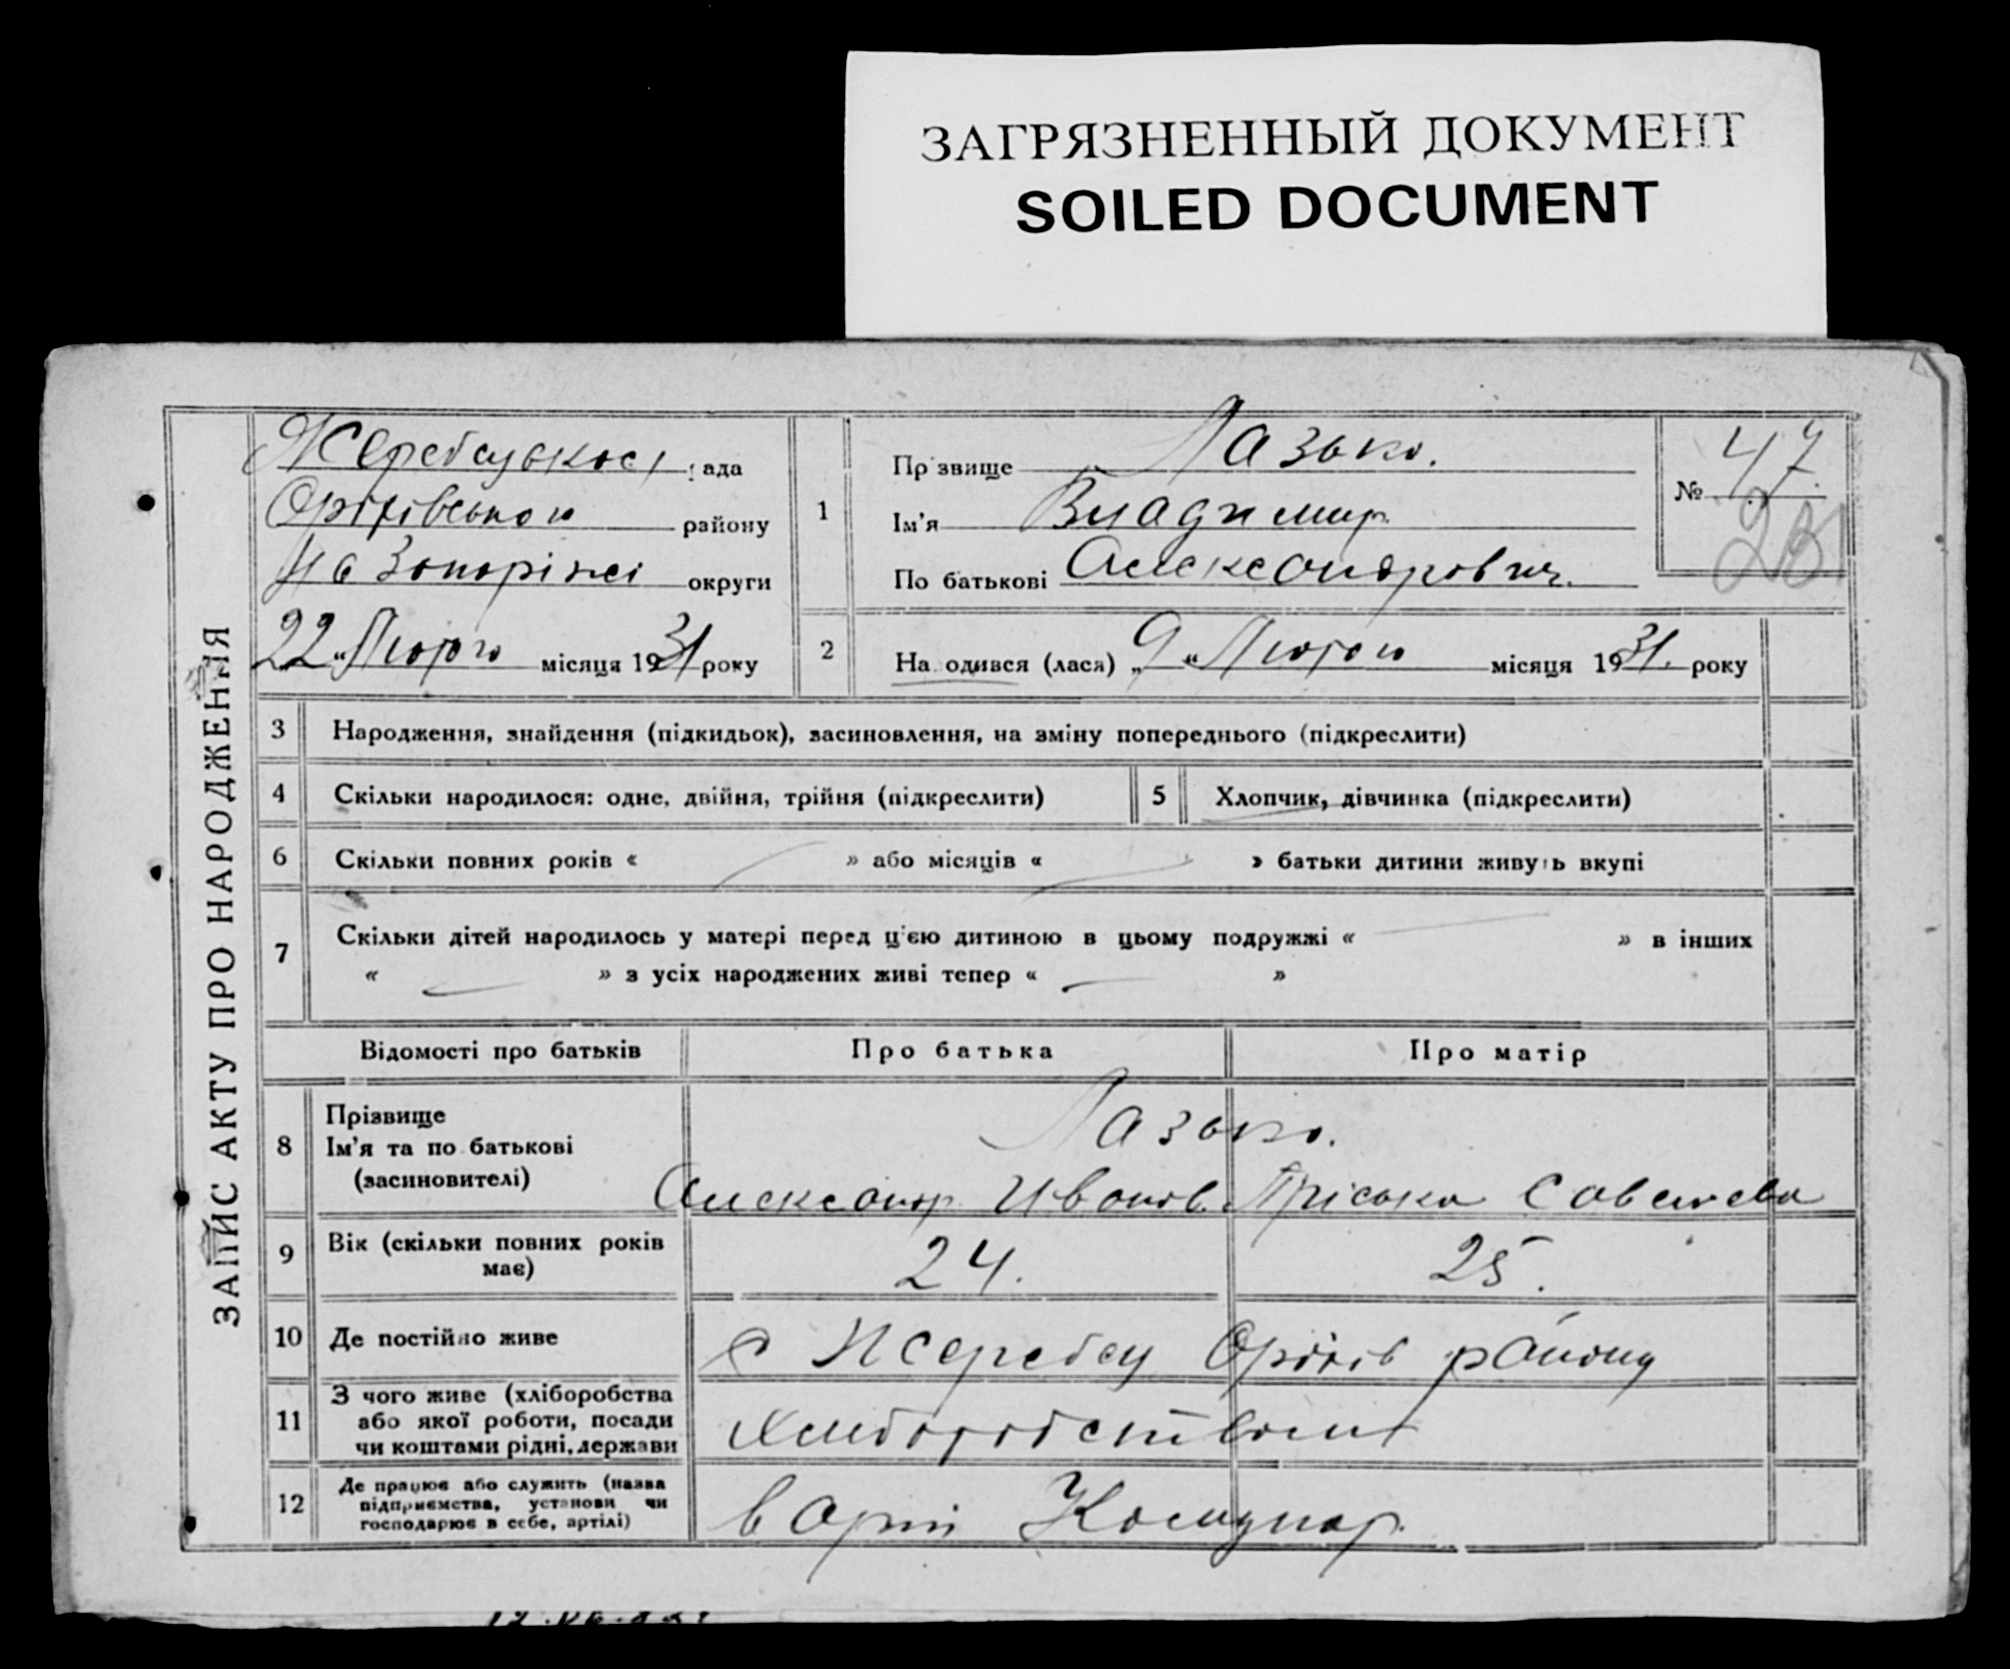 ЗАГРЯЗНЕННЫЙ ДОКУМЕНТ
SOILED DOCUMENT
ЗАПИС АКТУ ПРО НАРОДЖЕННЯ
Жеребецької рада
Оріхівського району
На Запоріжі округи
22 „Лютого місяця 1931 року
1
Прізвище Лазько.
Ім'я Владимир
По батькові Александрович.
№ 47
2
На одився (лася) „9“ Лютого місяця 1931. року
3 Народження, знайдення (підкидьок), засиновлення, на зміну попереднього (підкреслити)
4 Скільки народилося: одне, двійня, трійня (підкреслити)
5 Хлопчик, дівчинка (підкреслити)
6 Скільки повних років « » або місяців « » батьки дитини живуть вкупі
7 Скільки дітей народилось у матері перед цією дитиною в цьому подружжі « » в інших
« » з усіх народжених живі тепер « »
Відомості про батьків Про батька Про матір
8 Прізвище
Ім'я та по батькові
(засиновителі)
Лазько.
Александр Иванов. Пріська Савелева
9 Вік (скільки повних років
має)
24. 25.
10 Де постійно живе
с Жеребец Оріхів району
11 З чого живе (хліборобства
або якої роботи, посади
чи коштами рідні, держави
Хлиборобством
12 Де працює або служить (назва
підприємства, установи чи
господарює в себе, артілі)
в Арті Комунар.